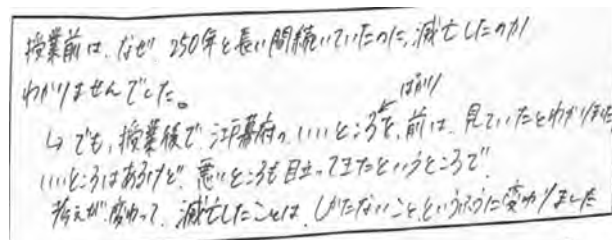 授業前は、なぜ250年と長い間続いていたのに、滅亡したのか
わかりませんでした。
ばかり
↳でも、授業後で江戸幕府の、いいところを、前は、見ていたとわかりました
いいところはあるけど、悪いところも目立ってきたというところで
考えが変わって、滅亡したことは、しかたないこと、というふうに変わりました